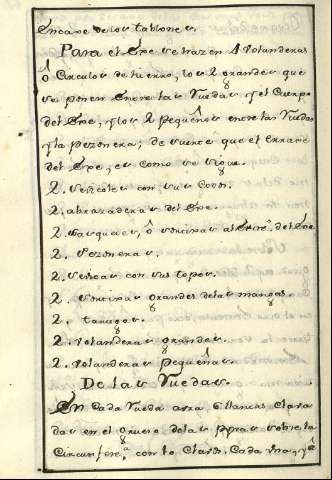 Encaxe de los tablones.
Para el Exe se hazen 4 volanderas
ô Circulos de hierro, los 2 grandes que
se ponen Entre las Ruedas y el Cuerpo
del Exe, y los 2 pequeños entre las Ruedas
y la pezonera; de suerte que el errage
del Exe, es como se sigue.
2. con sus
2. abrazaderas del Exe.
2. ô sencinas al del Exe
2. Pezoneras.
2. con sus topes.
2. grandes de las mangas.
2. tarugos.
2. volanderas grandes.
2. volanderas pequeñas.
De las Ruedas.
En Cada Rueda avra 6 llantas Clava
das en el grueso de las pinas sobre la
Circunfer.ª con 10 Clavos. Cada una, y